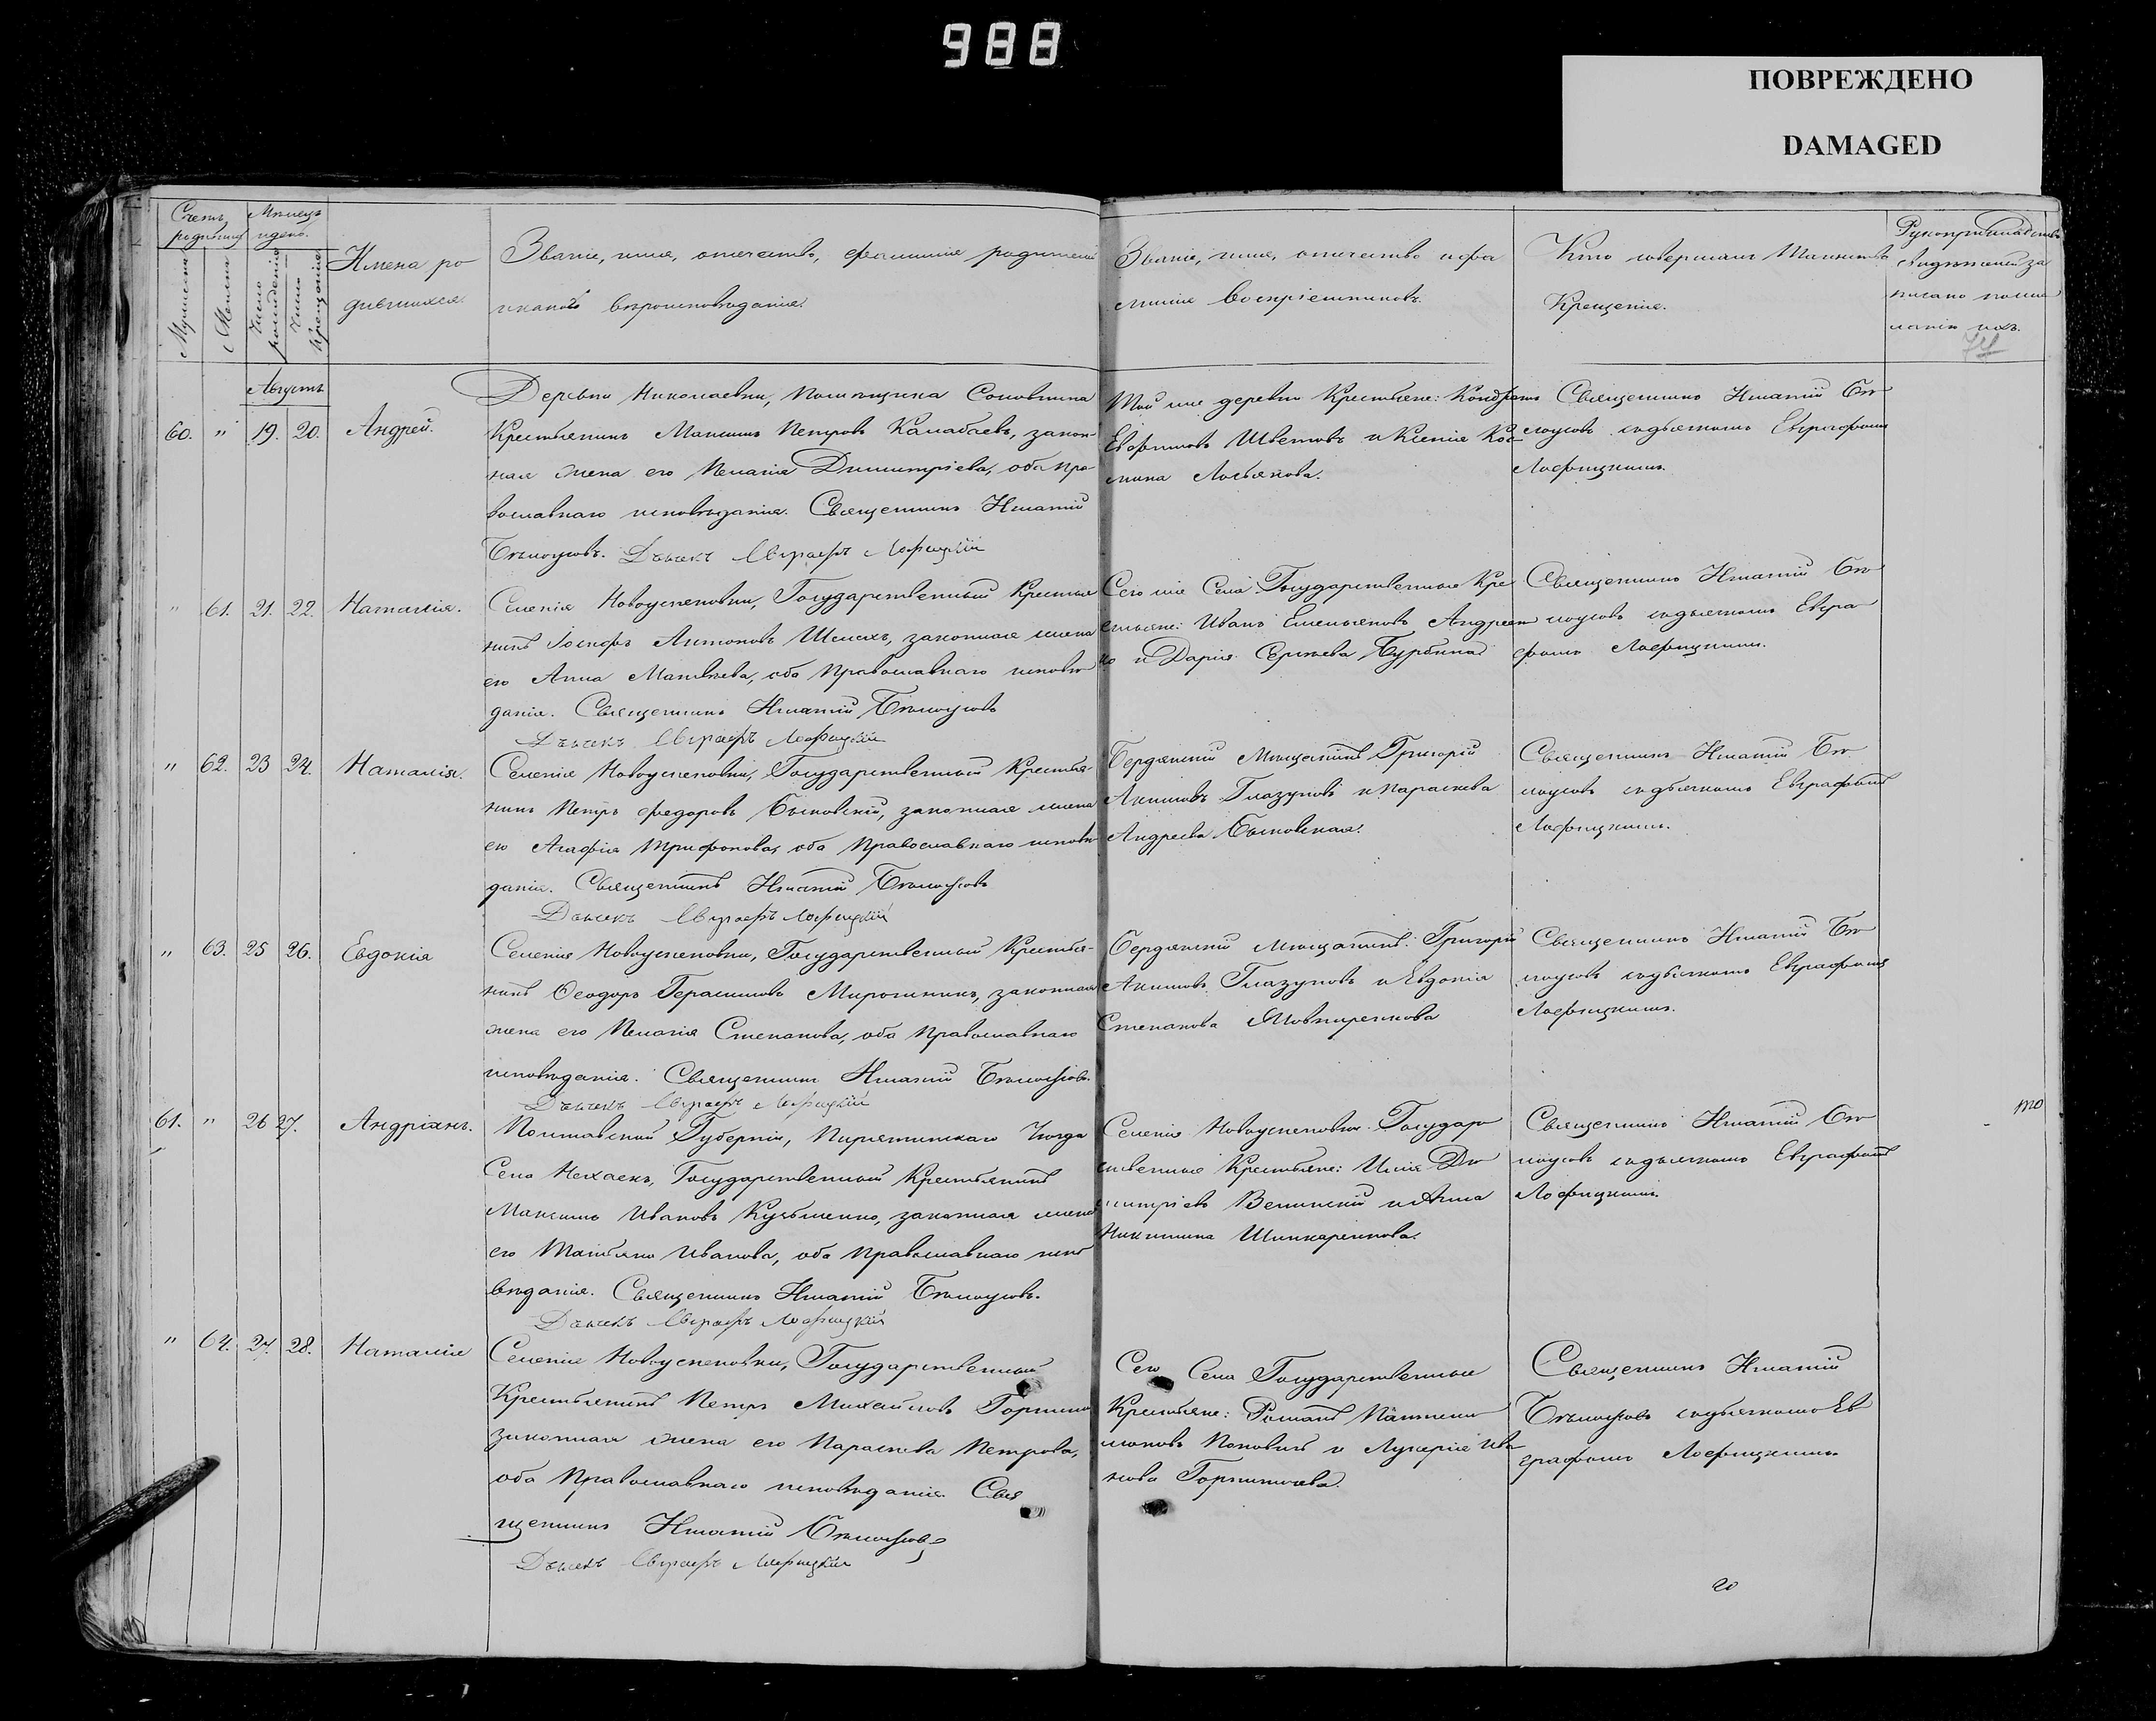 988
ПОВРЕЖДЕНО
DAMAGED
Счетъ родившихся
Мѣсяцъ и день.
Мужеска
Женска
Число рожденія
Число крещенія
Имена ро
дившихся.
Званіе, имя, отчество, фамилія родителей
и какого вѣроисповѣданія.
Званіе, имя, отчество и фа
милія воспріемниковъ.
Кто совершалъ Таинство
Крещенія.
Рукоприкладство
свидѣтелей за
писано по же
ланію ихъ.
74
Августъ
60. " 19. 20. Андрей.
Деревни Николаевки, Помѣщика
Крестьянинъ Максимъ Петровъ Калабаевъ, закон-
ная жена его Пелагія Димитріева, оба пра-
вославнаго исповѣданія. Священникъ Игнатій
Бѣлоусовъ. Дьячекъ Евграфъ Лофицкій
Той же деревни Крестьяне: Кондратъ
Евфимовъ Шветовъ и Ксенія Кос
мина
Священникъ Игнатій Бѣ
лоусовъ съ дьячкомъ Евграфомъ
Лофицкимъ.
" 61. 21. 22. Наталія.
Селенія Новоуспеновки, Государственный Крестья
нинъ Іосифъ Антоновъ Шелехъ, законная жена
его Анна Матвѣева, оба Православнаго исповѣ
данія. Священникъ Игнатій Бѣлоусовъ
Дьячекъ Евграфъ Лофицкій
Сего же Села Государственные Кре
стьяне: Иванъ Емельяновъ Андреен
ко и Дарія Сергѣева Бурбина
Священникъ Игнатій Бѣ
лоусовъ съ дьячкомъ Евгра
фомъ Лофицкимъ.
" 62. 23 24. Наталія.
Селенія Новоуспеновки, Государственный Крестья-
нинъ Петръ Федоровъ Быковскій, законная жена
его Агафія Трифонова, оба Православнаго исповѣ
данія. Священникъ Игнатій Бѣлоусовъ
Дьячекъ Евграфъ Лофицкій
Бердянскій Мѣщанинъ Григорій
Акимовъ Глазуновъ и Параскева
Андреева Быковская.
Священникъ Игнатій Бѣ
лоусовъ съ дьячкомъ Евграфомъ
Лофицкимъ.
" 63. 25 26. Евдокія
Селенія Новоуспеновки, Государственный Крестья-
нинъ Ѳеодоръ Герасимовъ Мирошникъ, законная
жена его Пелагія Степанова, оба Православнаго
исповѣданія. Священникъ Игнатій Бѣлоусовъ.
Дьячекъ Евграфъ Лофицкій
Бердянскій мѣщанинъ: Григорій
Акимовъ Глазуновъ и Евдокія
Степанова
Священникъ Игнатій Бѣ
лоусовъ съ дьячкомъ Евграфомъ
Лофицкимъ.
61. " 26 27. Андріанъ.
Полтавской Губерніи, Пирятинскаго Уѣзда
Села Нехаекъ, Государственный Крестьянинъ
Максимъ Ивановъ Кузьменко, законная жена
его Татьяна Иванова, оба Православнаго испо
вѣданія. Священникъ Игнатій Бѣлоусовъ.
Дьячекъ Евграфъ Лофицкій
Селенія Новоуспеновки Государ
ственные Крестьяне: Илія Ди
митріевъ Велинскій и Анна
Никитина Шинкаренкова.
Священникъ Игнатій Бѣ
лоусовъ съ дьячкомъ Евграфомъ
Лофицкимъ.
" 64. 27. 28. Наталія
Селенія Новоуспеновки, Государственный
Крестьянинъ Петръ Михайловъ
законная жена его Параскева Петрова,
оба Православнаго исповѣданія. Свя
щенникъ Игнатій Бѣлоусовъ
Дьячекъ Евграфъ Лофицкій
Сего Села Государственные
Крестьяне: Романъ Пантелеи
моновъ Поповичъ и Лукерія Ива
нова
Священникъ Игнатій
Бѣлоусовъ съ дьячкомъ Ев
графомъ Лофицкимъ.